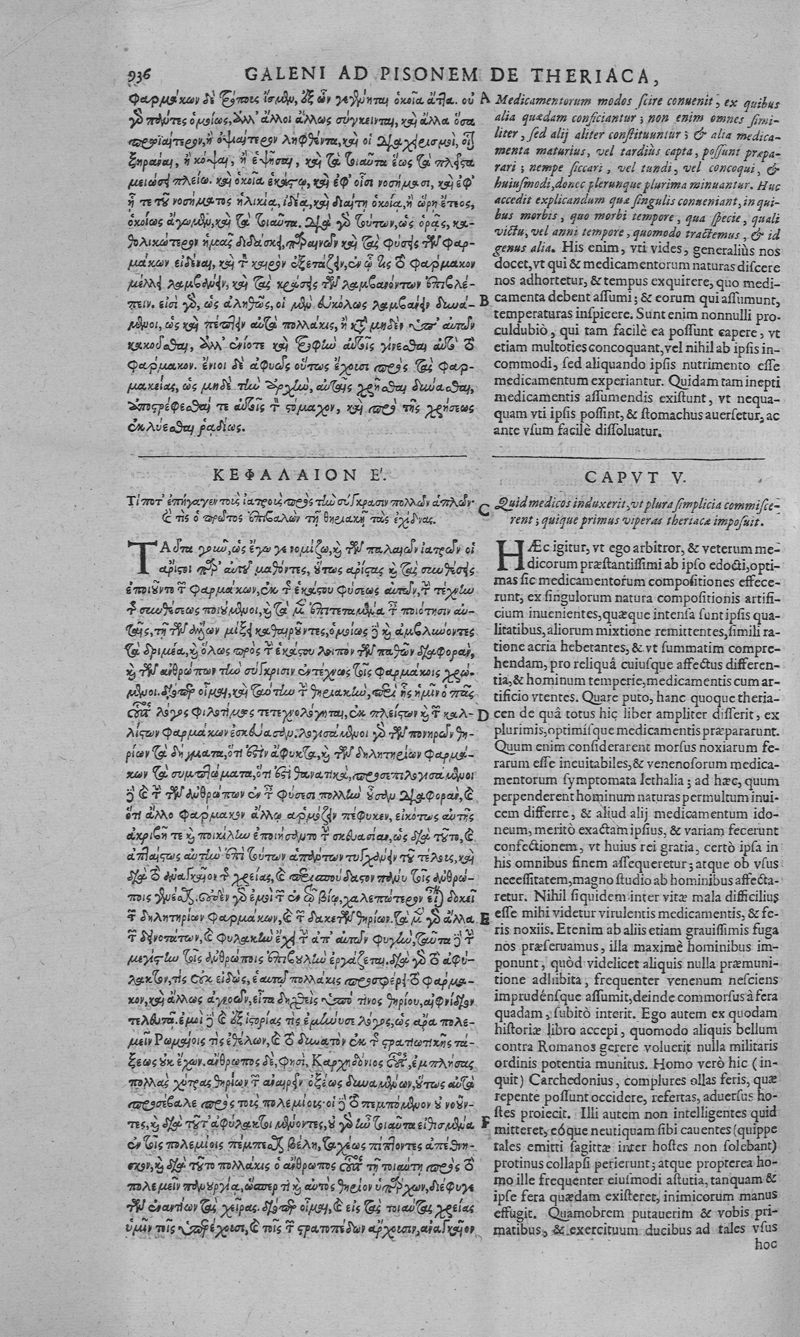 936 GALENI AD PISONEM DE THERIACA,
φαρμάκων δὲ
πάντες ὁμοίως, ἀλλ' ἄλλοι ἄλλως σύγκεινται, καὶ ἄλλα ὅσα
μειώσῃ πλείω. καὶ ὁκοῖα ἑκάστῳ, καὶ ἐφ' οἷσι νοσήμασι, καὶ ἐφ'
ἢ τε τοῦ νοσήματος ἡλικία, ἰδέα, καὶ διαίτη ὁκοίᾳ, ἢ ὥρη ἔτεος,
καὶ τὰ τοιαῦτα. διὰ γὸ τούτων, ὡς ὁρᾷς, κα-
θολικώτερον ἡμᾶς διδάσκει, καὶ τὰς φύσεις τῶν φαρ-
μάκων εἰδέναι, καὶ τὸν καιρὸν ἐξετάζειν, ἐν ᾧ τις τὸ φάρμακον
μέλλει λαμβάνειν, καὶ τὰς κράσεις τῶν λαμβανόντων ἐπιβλέ-
πειν. εἰσὶ γὸ, ὡς ἀληθῶς, οἱ μὲν εὐκόλως λαμβάνειν δυνά-
μενοι, ὡς καὶ πέπτειν αὐτὰ πολλάκις, ἢ μηδὲν ὑπ' αὐτῶν
φάρμακον. ἔνιοι δὲ ἀφυῶς οὕτως ἔχουσι πρὸς τὰς φαρ-
μακείας, ὡς μηδὲ τὴν ἀρχὴν, αὐταῖς χρῆσθαι δύνασθαι,
ἀποστρέφεσθαί τε αὐτοῖς τὸ στόμαχον, καὶ πρὸ τῆς χρήσεως
ἐκλύεσθαι ῥᾳδίως.
A Medicamentorum modos scire conuenit, ex quibus
alia quædam conficiantur; non enim omnes simi-
liter, sed alij aliter constituuntur; & alia medica-
menta maturius, vel tardiùs capta, possunt præpa-
rari; nempe siccari, vel tundi, vel concoqui, &
huiusmodi, donec plerunque plurima minuantur. Huc
accedit explicandum quæ singulis conueniant, in qui-
bus morbis, quo morbi tempore, qua specie, quali
victu, vel anni tempore, quomodo tractemus, & id
genus alia. His enim, vti vides, generaliùs nos
docet, vt qui & medicamentorum naturas discere
nos adhortetur, & tempus exquirere, quo medi-
B camenta debent assumi; & eorum qui assumunt,
temperaturas inspicere. Sunt enim nonnulli pro-
culdubiò, qui tam facilè ea possunt capere, vt
etiam multoties concoquant, vel nihil ab ipsis in-
commodi, sed aliquando ipsis nutrimento esse
medicamentum experiantur. Quidam tam inepti
medicamentis assumendis existunt, vt nequa-
quam vti ipsis possint, & stomachus auersetur, ac
ante vsum facilè dissoluatur.
ΚΕΦΑΛΑΙΟΝ Ε'.
Τί ποτ' ἐπήγαγεν τοὺς ἰατροὺς πρὸς τὴν σύγκρασιν πολλῶν ἁπλῶν·
καὶ τίς ὁ πρῶτος ἐπιβαλὼν τῇ θηριακῇ τὰς ἐχίδνας.
ΤΑῦτα γοῦν, ὡς ἐγὼ νομίζω, καὶ τῶν παλαιῶν ἰατρῶν οἱ
ἄριστοι παρ' αὐτοῦ μαθόντες, οὕτως ἀρίστας καὶ τὰς συνθέσεις
ἐποιοῦντο τῶν φαρμάκων, ἐκ τῆς ἑκάστου φύσεως αὐτῶν, τὴν τέχνην
τῆς συνθέσεως ποιούμενοι, καὶ τὰ μὲν ἐπιτεταμένα τὴν ποιότησιν αὐ-
ταῖς, τῇ τῶν ἄλλων μίξει καθαιροῦντες, ὁμοίως καὶ ἀμβλύνοντες
τὰ δριμέα, καὶ ὅλως πρὸς τὴν ἑκάστου λοιπὸν τῶν παθῶν διαφορὰν,
καὶ τῶν ἀνθρώπων τὴν σύγκρισιν ἐντέχνως τοῖς φαρμάκοις χρώ-
μενοι. διόπερ οἶμαι, καὶ ταύτην τὴν θηριακὴν, περὶ ἧς ἡμῖν ὁ πᾶς
οὗτος λόγος φιλοτίμως τετεχνολόγηται, ἐκ πλείστων καὶ τῶν καλ-
λίστων φαρμάκων ἐσκεύασαν. λογισάμενοι γὸ τῶν πονηρῶν θη-
ρίων τὰ δήγματα, ὅτι ἐστὶν ἄφυκτα, καὶ τῶν δηλητηρίων φαρμά-
κων τὰ συμπτώματα, ὅτι ἐστὶ θανατικά, προσεπιλογισάμενοι
καὶ τῶν ἀνθρώπων ἐν τῇ φύσεσι πολλὴν οὖσαν διαφορὰν, καὶ
ὅτι ἄλλο φάρμακον ἄλλῳ ἁρμόζειν πέφυκεν, εἰκότως αὐτῆς
ἀκριβῆ τε καὶ ποικίλην ἐποιήσαντο τὴν σκευασίαν, ὡς διὰ τοῦτο,
ἀπταίστως αὐτὴν ἐπὶ τούτων ἁπάντων τυγχάνειν τοῦ τέλους, καὶ
διὰ τὸ ἀναγκαῖον τῆς χρείας, περισπούδαστον πάνυ τοῖς ἀνθρώ-
ποις γενέσθαι. οὐδὲν γὸ ἐμοὶ τῶν ἐν τῷ βίῳ, χαλεπώτερον εἶναι δοκεῖ
τῶν δηλητηρίων φαρμάκων, καὶ τῶν δακετῶν θηρίων. τὰ μὲν γὸ ἄλλα
τῶν δεινοτάτων, καὶ φυλακὴν ἔχει καὶ ἀπ' αὐτῶν φυγὴν, ταῦτα
μεγίστην τοῖς ἀνθρώποις ἐπιβουλὴν ἐργάζεται. διὰ γὸ τὸ ἀφύ-
λακτον, τὶς οὐκ εἰδὼς, ἑαυτῷ πολλάκις προσφέρει τὸ φάρμα-
κον, καὶ ἄλλως ἀγνοῶν, εἶτα δηχθεὶς ὑπό τινος θηρίου, αἰφνίδιον
τελευτᾷ. ἐμοὶ καὶ ἐξ ἱστορίας τὶς ἐμήνυσε λόγος, ὡς ἄρα πολε-
μεῖν Ῥωμαίοις τὶς ἐθέλων, καὶ τὸ δυνατὸν ἐκ τῆς στρατιωτικῆς τά-
ξεως οὐκ ἔχων. ἄνθρωπος δὲ, φησὶ, Καρχηδόνιος οὗτος, ἐμπλήσας
πολλὰς χύτρας θηρίων τῶν ἀναιρεῖν ὀξέως δυναμένων, οὕτως αὐτὰ
προσέβαλε πρὸς τοὺς πολεμίους. οἱ τὸ πεμπόμενον οὐ νοοῦν-
τες, καὶ διὰ τοῦτ' ἀφύλακτοι μένοντες, οὐ γὸ τοιαῦτα εἰθισμένα
ἐν τοῖς πολεμίοις πέμπεσθαι βέλη, ταχέως πίπτοντες ἀπέθνη-
σκον, καὶ διὰ τοῦτο πολλάκις ὁ ἄνθρωπος οὗτος τῇ τοιαύτῃ πρὸς τὸ
πολεμεῖν πανουργίᾳ, ὥσπερ τὶ καὶ αὐτὸς θηρίον ὑπάρχων, διέφυγε
τῶν ἐναντίων τὰς χεῖρας. διόπερ οἶμαι, καὶ εἰς τὰς τοιαύτας χρείας
ὑμῖν τοῖς ὑπερέχουσι, καὶ τοῖς τῶν στρατοπέδων ἄρχουσιν, ἀναγκαῖον
CAPVT V.
C Quid medicos induxerit, vt plura simplicia commisce-
rent; quique primus viperas theriacæ imposuit.
HÆc igitur, vt ego arbitror, & veterum me-
dicorum præstantissimi ab ipso edocti, opti-
mas sic medicamentorum compositiones effece-
runt; ex singulorum natura compositionis artifi-
cium inuenientes, quæque intensa sunt ipsis qua-
litatibus, aliorum mixtione remittentes, simili ra-
tione acria hebetantes, & vt summatim compre-
hendam, pro reliquâ cuiusque affectus differen-
tia, & hominum temperie, medicamentis cum ar-
tificio vtentes. Quare puto, hanc quoque theria-
D cen de quâ totus hic liber ampliter disserit, ex
plurimis, optimisque medicamentis præpararunt.
Quum enim considerarent morsus noxiarum fe-
rarum esse ineuitabiles, & venenosorum medica-
mentorum symptomata lethalia; ad hæc, quum
perpenderent hominum naturas permultum inui-
cem differre, & aliud alij medicamentum ido-
neum, meritò exactam ipsius, & variam fecerunt
confectionem, vt huius rei gratia, certò ipsa in
his omnibus finem assequeretur; atque ob vsus
necessitatem, magno studio ab hominibus affecta-
retur. Nihil siquidem inter vitæ mala difficilius
E esse mihi videtur virulentis medicamentis, & fe-
ris noxiis. Etenim ab aliis etiam grauissimis fuga
nos præseruamus, illa maximè hominibus im-
ponunt, quòd videlicet aliquis nulla præmuni-
tione adhibita, frequenter venenum nesciens
imprudénsque assumit, deinde commorsus à fera
quadam, subitò interit. Ego autem ex quodam
historiæ libro accepi, quomodo aliquis bellum
contra Romanos gerere voluerit nulla militaris
ordinis potentia munitus. Homo verò hic (in-
quit) Carchedonius, complures ollas feris, quæ
repente possunt occidere, refertas, aduersus ho-
stes proiecit. Illi autem non intelligentes quid
F mitteret, eóque neutiquam sibi cauentes (quippe
tales emitti sagittæ inter hostes non solebant)
protinus collapsi perierunt; atque propterea ho-
mo ille frequenter eiusmodi astutia, tanquam &
ipse fera quædam existeret, inimicorum manus
effugit. Quamobrem putauerim & vobis pri-
matibus, & exercituum ducibus ad tales vsus
hoc